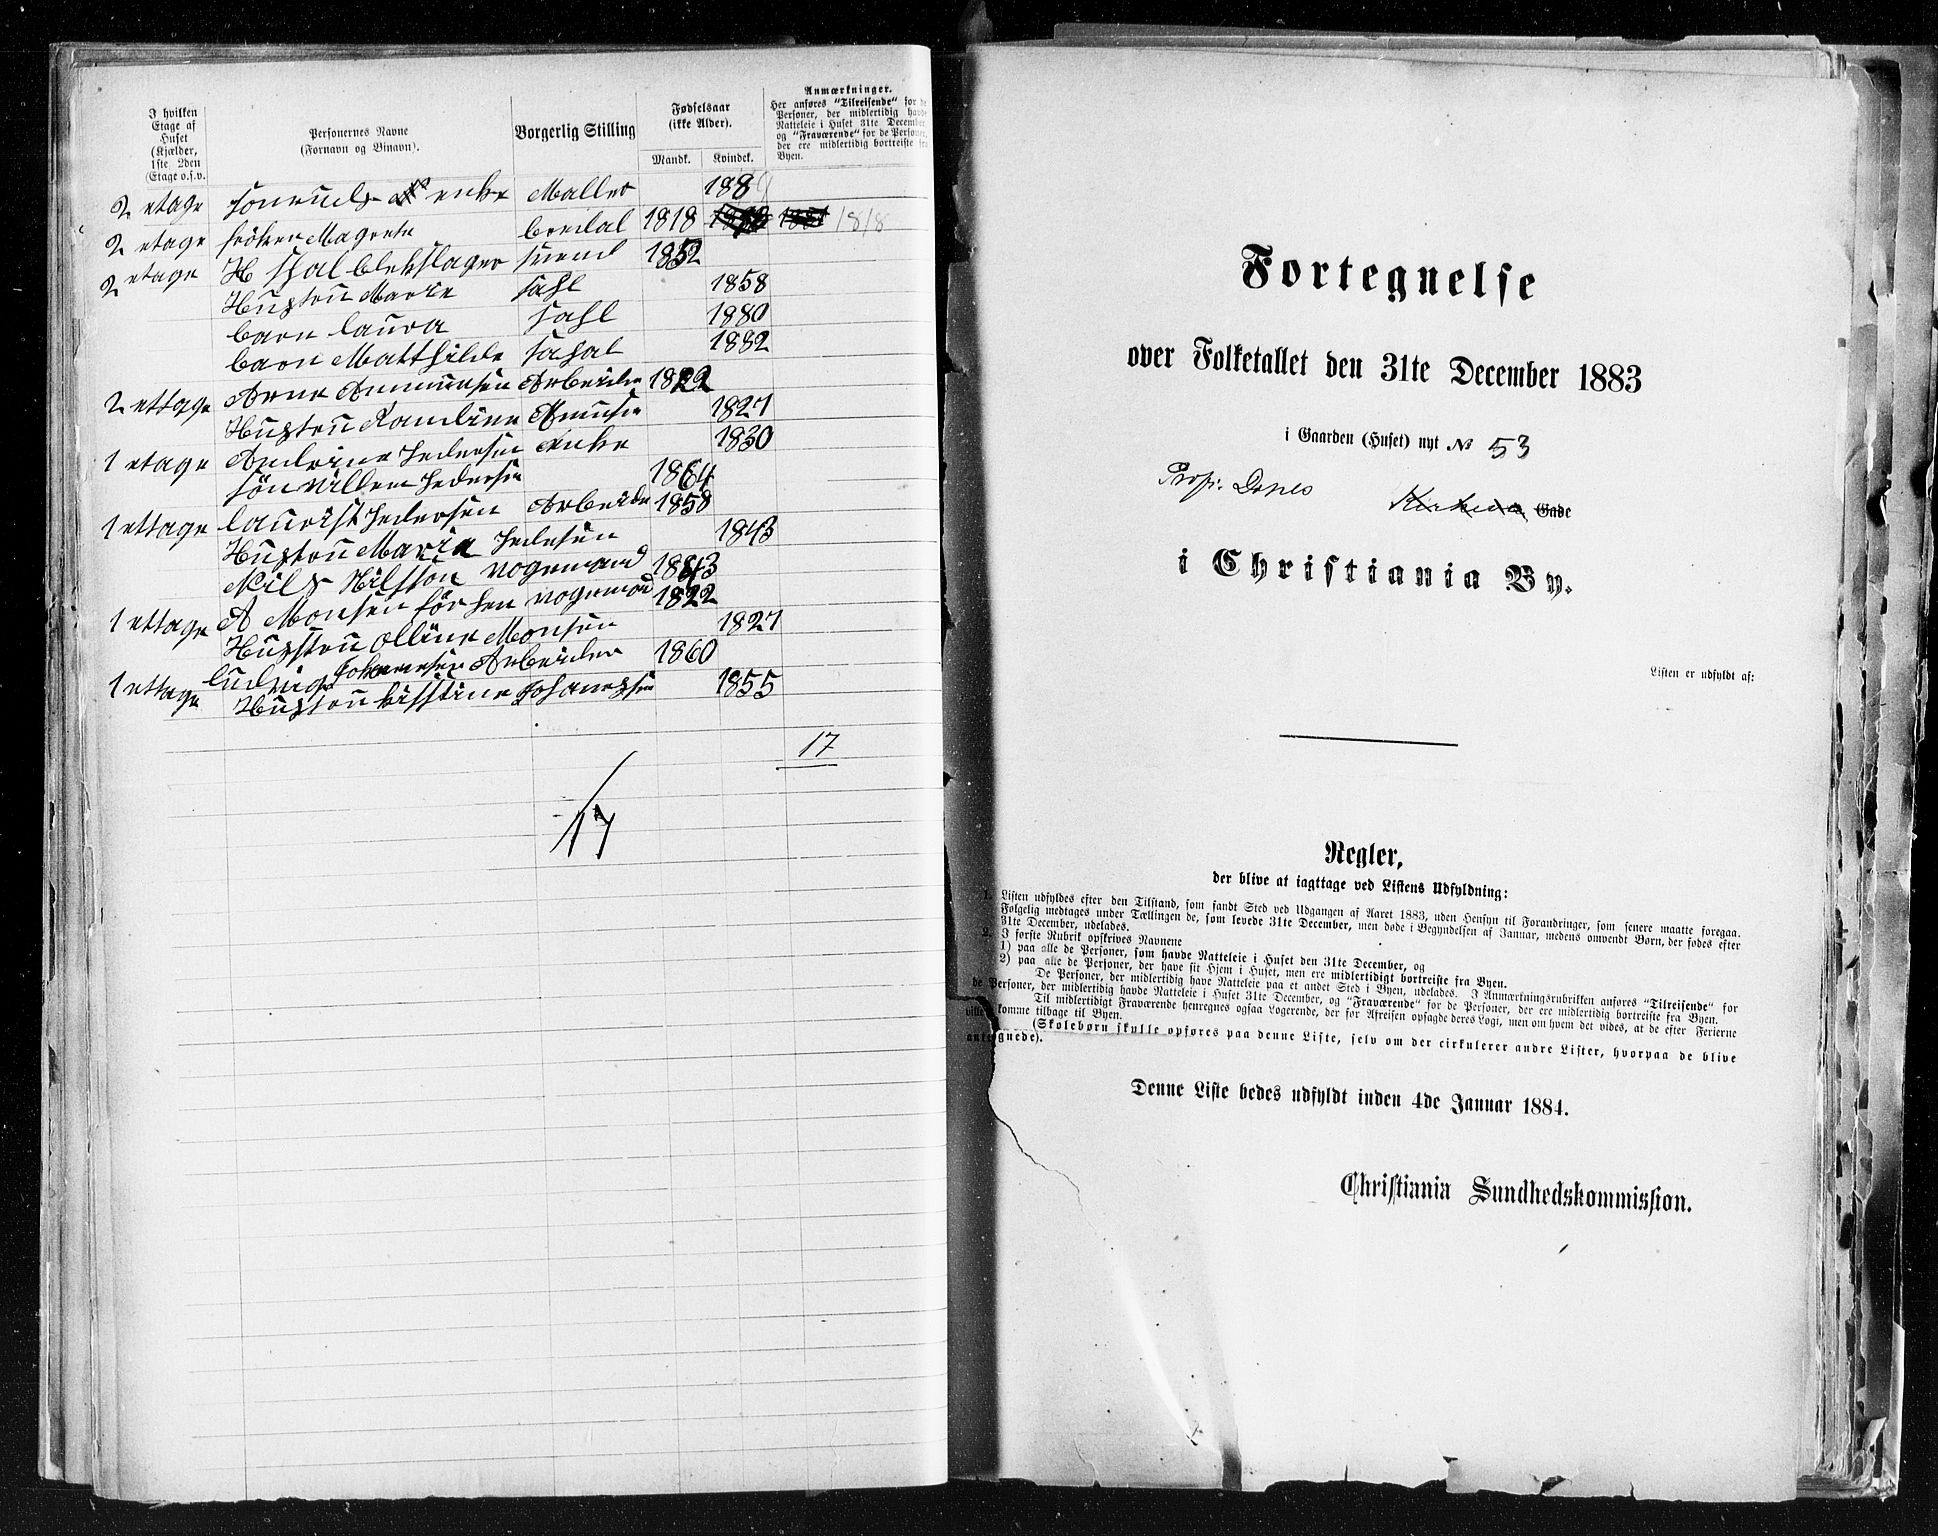 I hvilken
Etage af
Huset
(Kjælder,
1ste 2den
Etage o.s.v.
Personernes Navne
(Fornavn og Binavn).
Borgerlig Stilling
Fødselsaar
(ikke Alder).
Mandk. Kvindek.
Anmærkninger.
Her anføres "Tilreisende" for de
Personer, der midlertidig havde
Natteleie i Huset 31te December,
og "Fraværende" for de Personer,
der ere midlertidig bortreiste fra
Byen.
2 etage enke Maller
2 etage fröken Magrete Bredal 1818 1818
2 etage H Sahl blekslager svend 1852
Hustru Marie Sahl 1858
barn Laura Sahl 1880
barn Matthilde Sahal 1882
2 ettage Arne Asmunsen Arbeider 1822
Hustru Asmusen 1827
1 etage Andrine Pedersen enke 1830
sön Villem Pedersen 1864
1 ettage Laurist Pedersen Arbeide 1858
Hustru Maria Pedesen 1843
Nils Nilsson vogemand 1843
1 ettage A Monsen vogemand 1822
Hustru Olline Monsen 1827
1 ettage Ludvig Johannesen Arbeider 1860
Hustru Kisstine Johannesen 1855
17
17
Fortegnelse
over Folketallet den 31te December 1883
i Gaarden (Huset) nyt № 53
Prof. Dahls Kirkeve Gade
i Christiania By.
Listen er udfyldt af:
Regler,
der blive at iagttage ved Listens Udfyldning:
1. Listen udfyldes efter den Tilstand, som fandt Sted ved Udgangen af Aaret 1883, uden Hensyn til Forandringer, som senere maatte foregaa.
Følgelig medtages under Tællingen de, som levede 31te December, men døde i Begyndelsen af Januar, medens omvendt Børn, der fødes efter
31te December, udelades.
2. I første Rubrik opskrives Navnene
1) paa alle de Personer, som havde Natteleie i Huset den 31te December, og
2) paa alle de Personer, der have sit Hjem i Huset, men ere midlertidigt bortreiste fra Byen.
De Personer, der midlertidig have Natteleie paa et andet Sted i Byen, udelades. I Anmærkningsrubrikken anføres "Tilreisende" for
de Personer, der midlertidig havde Natteleie i Huset 31te December, og "Fraværende" for de Personer, der ere midlertidig bortreiste fra Byen.
Til midlertidigt Fraværende henregnes ogsaa Logerende, der før Afreisen opsagde deres Logi, men om hvem det vides, at de efter Ferierne
ville komme tilbage til Byen.
(Skolebørn skulle opføres paa denne Liste, selv om der cirkulerer andre Lister, hvorpaa de blive
antegnede).
Denne Liste bedes udfyldt inden 4de Januar 1884.
Christiania Sundhedskommission.